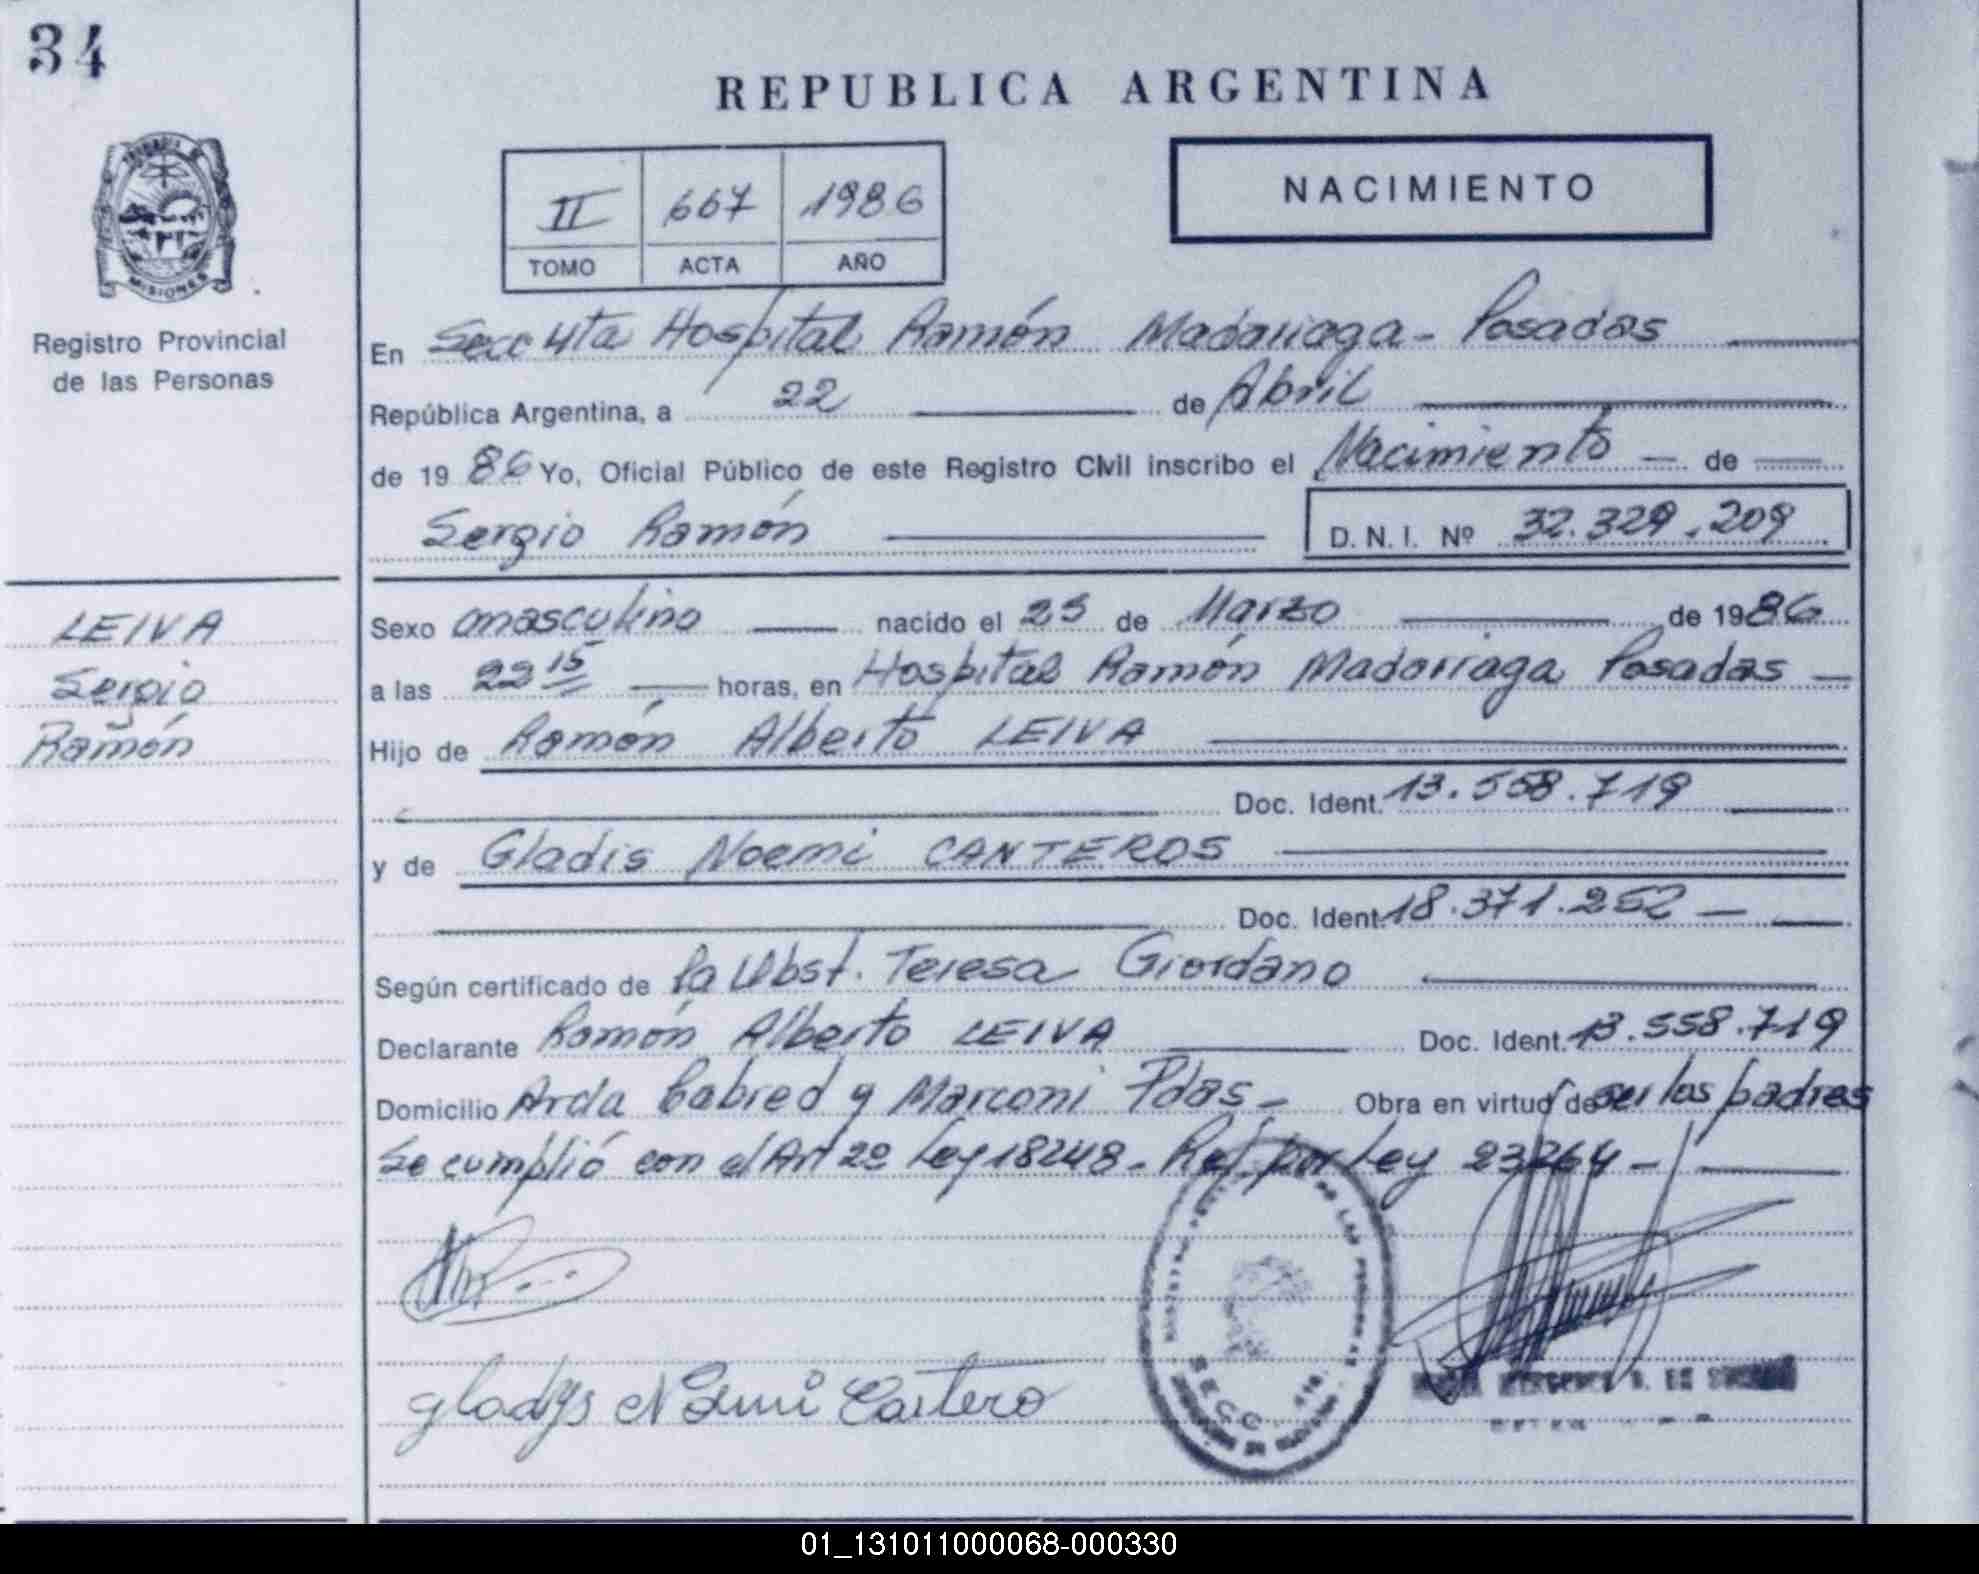 34
REPUBLICA ARGENTINA
II 667 1986
TOMO ACTA AÑO
NACIMIENTO
PROVINCIA DE
MISIONES
Registro Provincial
de las Personas
En Secc 4ta Hospital Ramón Madariaga - Posadas
República Argentina, a 22 de Abril
de 19 86 Yo, Oficial Público de este Registro Civil inscribo el Nacimiento de
Sergio Ramón D. N. I. Nº 32.329.209
LEIVA
Sergio
Ramón
Sexo masculino nacido el 23 de Marzo de 1986
a las 22 15 horas, en Hospital Ramón Madarriaga Posadas
Hijo de Ramón Alberto LEIVA
Doc. Ident. 13.558.719
y de Gladis Noemi CANTEROS
Doc. Ident. 18.371.252
Según certificado de la Obst. Teresa Giordano
Declarante Ramón Alberto LEIVA Doc. Ident. 13.558.719
Domicilio Avda Cabred y Marconi Pdas - Obra en virtud de ser los padres
Se cumplió con el Art 2º Ley 18248 - Ref. por Ley 23264 -
gladys Noemi Cantero
SECC. 4ta.
01_131011000068-000330